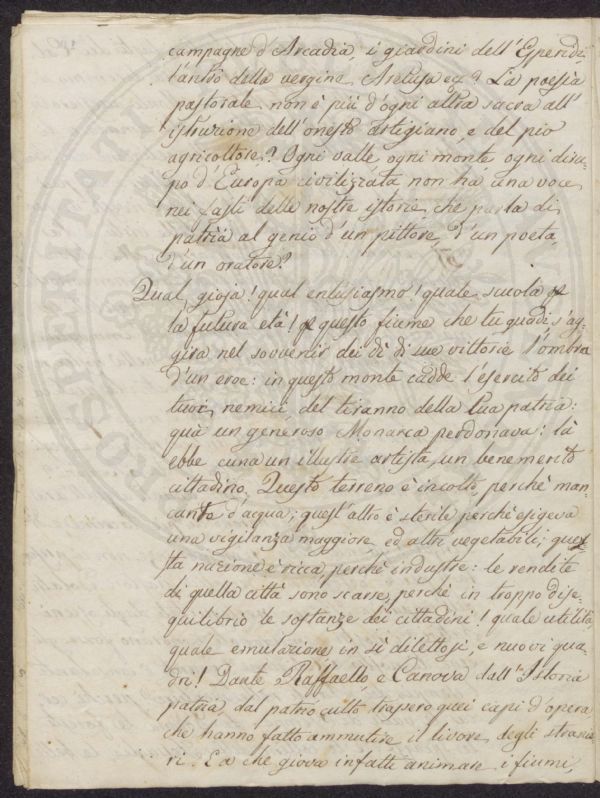 campagne d'Arcadia, i giardini dell'Esperidi
l'antro della vergine Aretusa ec? La poesia
pastorale non è più d'ogni altra sacra all'
istruzione dell'onesto artigiano, e del pio
agricoltore? Ogni valle ogni monte ogni diru-
po d'Europa civilizzata non há una voce
nei fasti delle nostre istorie, che parla di
patria al genio d'un pittore, d'un poeta,
d'un oratore?
Qual gioja! qual entusiasmo! quale scuola
la futura età! questo fiume che tu guadi, s'ag-
gira nel sovvenir dei dì di sue vittorie l'ombra
d'un eroe: in questo monte cadde l'esercito dei
tuoi nemici, del tiranno della tua patria:
quà un generoso Monarca perdonava: là
ebbe cuna un illustre artista, un benemerito
cittadino. Questo terreno è incolto, perchè man-
cante d'acqua; quest'altro è sterile perchè esigeva
una vigilanza maggiore, ed altri vegetabili; ques-
ta nazione è ricca, perchè industre: le rendite
di quella città sono scarse, perchè in troppo dise-
quilibrio le sostanze dei cittadini! quale utilità,
quale emulazione in sì dilettosi, e nuovi qua-
dri! Dante Raffaello, e Canova dall'Istoria
patria, dal patrio culto trassero quei capi d'opera
che hanno fatto ammutire il livore degli stranie-
ri. E a che giova infatti animare i fiumi,
PROSPERITATI